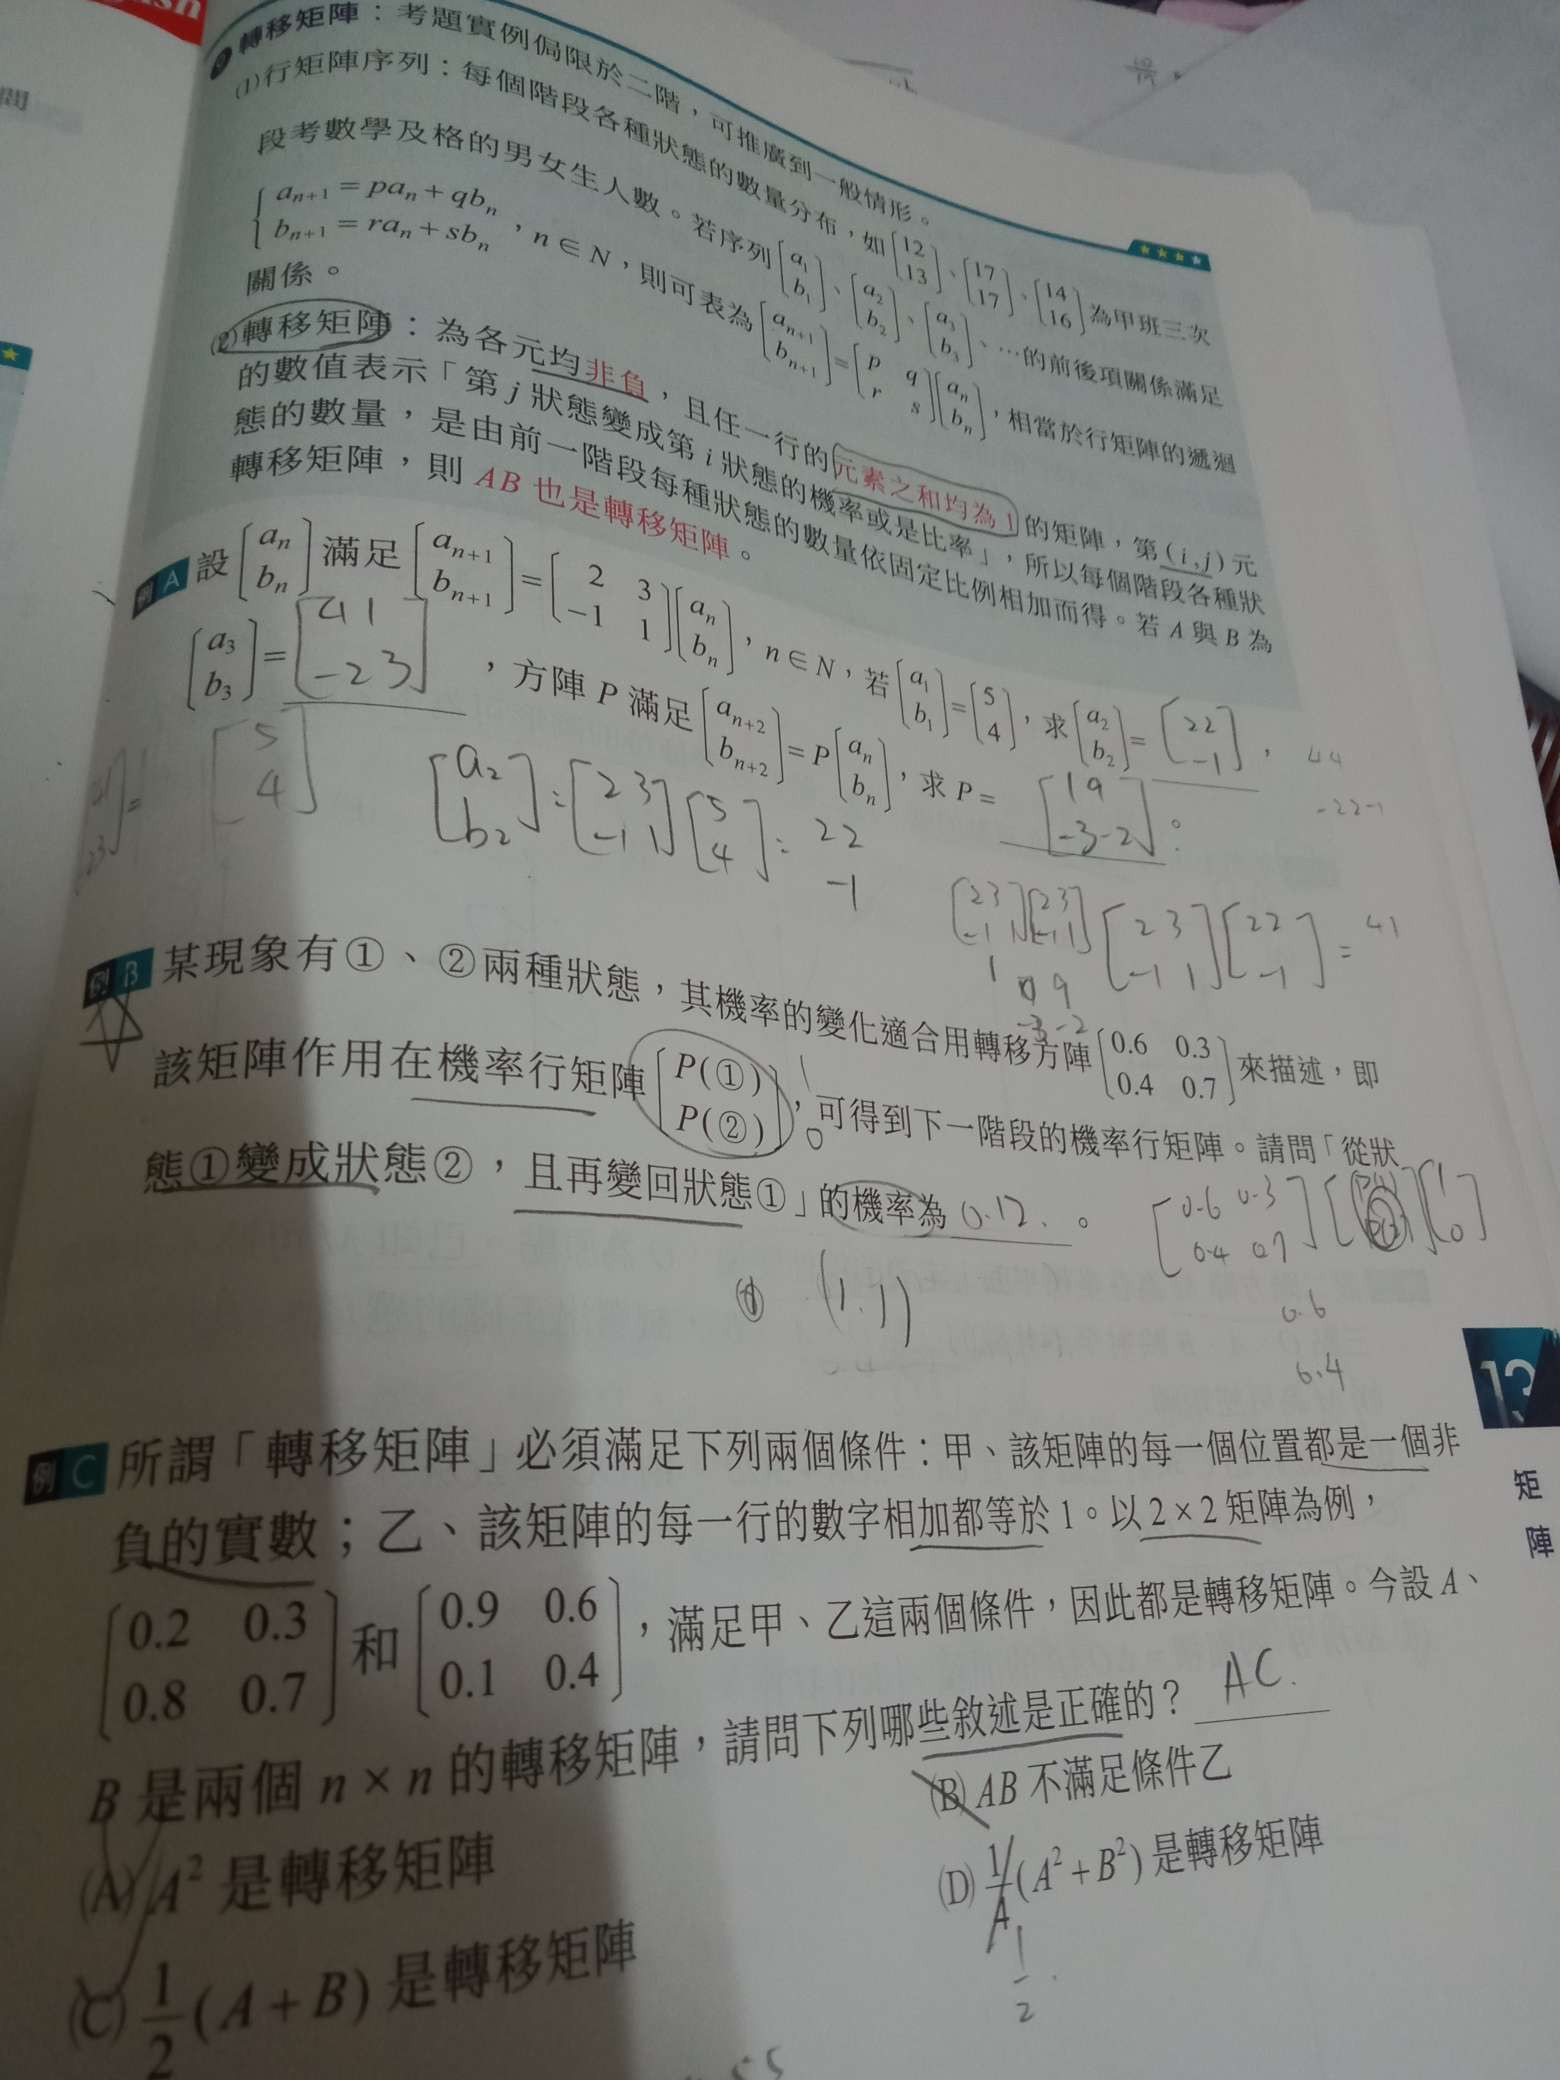 轉移矩陣：考題實例侷限於二階，可推廣到一般情形。
(1)行矩陣序列：每個階段各種狀態的數量分布，如[12 13]、[17 17]、[14 16]為甲班三次
段考數學及格的男女生人數。若序列[a₁ b₁]、[a₂ b₂]、[a₃ b₃]、…的前後項關係滿足
{aₙ₊₁＝paₙ＋qbₙ
bₙ₊₁＝raₙ＋sbₙ，n∈N，則可表為[aₙ₊₁ bₙ₊₁]＝[p q r s][aₙ bₙ]，相當於行矩陣的遞迴
關係。
(2)轉移矩陣：為各元均非負，且任一行的元素之和均為1的矩陣，第(i,j)元
的數值表示「第j狀態變成第i狀態的機率或是比率」，所以每個階段各種狀
態的數量，是由前一階段每種狀態的數量依固定比例相加而得。若A與B為
轉移矩陣，則AB也是轉移矩陣。
例A 設[aₙ bₙ]滿足[aₙ₊₁ bₙ₊₁]＝[2 3 −1 1][aₙ bₙ]，n∈N，若[a₁ b₁]＝[5 4]，求[a₂ b₂]＝[22 −1]，
[a₃ b₃]＝[41 −23]，方陣P滿足[aₙ₊₂ bₙ₊₂]＝P[aₙ bₙ]，求P＝[1 9 −3 −2]。
[5 4]
44
−22−1
[a₂ b₂]=[2 3 −1 1][5 4]= 22 −1
[2 3 −1 1][2 3 −1 1]
1 9
−3 −2
[2 3 −1 1][22 −1]= 41
例B 某現象有①、②兩種狀態，其機率的變化適合用轉移方陣[0.6 0.3 0.4 0.7]來描述，即
該矩陣作用在機率行矩陣[P(①) P(②)]，可得到下一階段的機率行矩陣。請問「從狀
1
0
態①變成狀態②，且再變回狀態①」的機率為0.12.。
[0.6 0.3 0.4 0.7] [1 0]
(1.1)
0.6
0.4
13
矩陣
例C 所謂「轉移矩陣」必須滿足下列兩個條件：甲、該矩陣的每一個位置都是一個非
負的實數；乙、該矩陣的每一行的數字相加都等於1。以2×2矩陣為例，
[0.2 0.3 0.8 0.7]和[0.9 0.6 0.1 0.4]，滿足甲、乙這兩個條件，因此都是轉移矩陣。今設A、
B是兩個n×n的轉移矩陣，請問下列哪些敘述是正確的？AC.
(A)A²是轉移矩陣
(B)AB不滿足條件乙
(C)1/2(A＋B)是轉移矩陣
(D)1/4(A²＋B²)是轉移矩陣
1/2